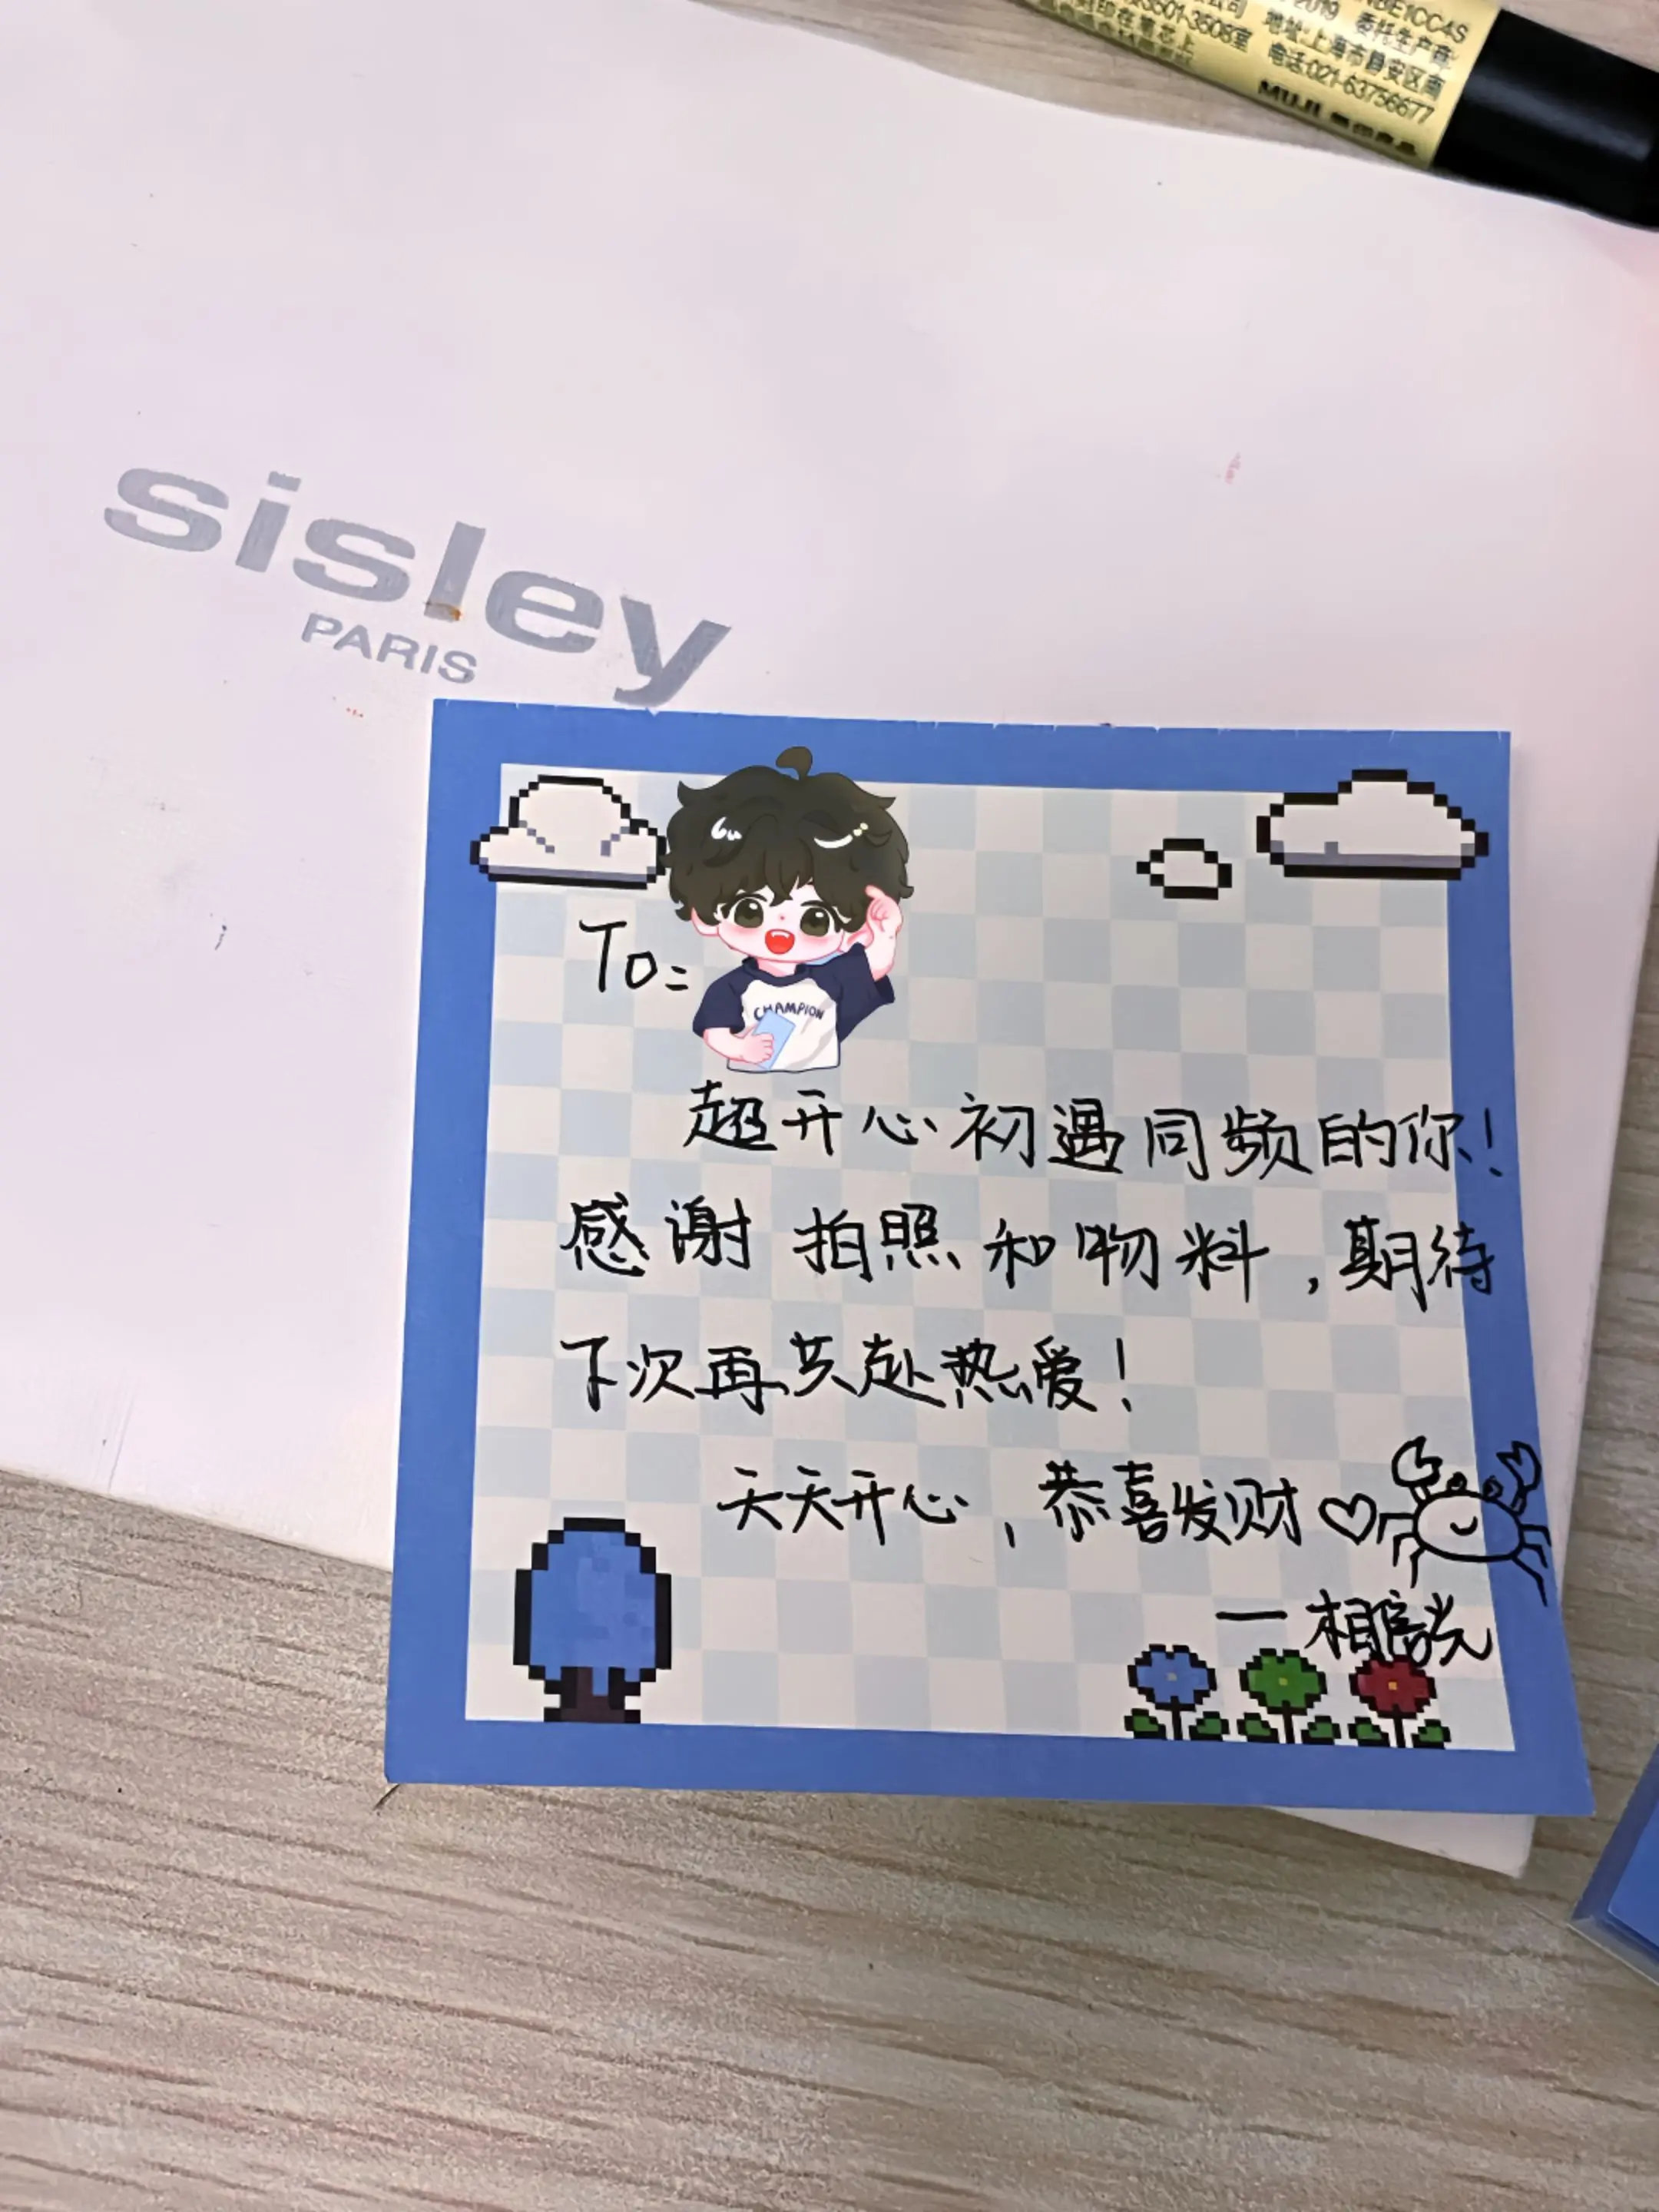 2019 委托生产商
地址:上海市静安区南
电话:021-63756677
MUJI
sisley
PARIS
To:
CHAMPION
超开心初遇同频的你!
感谢拍照和物料,期待
下次再共赴热爱!
天天开心,恭喜发财♡